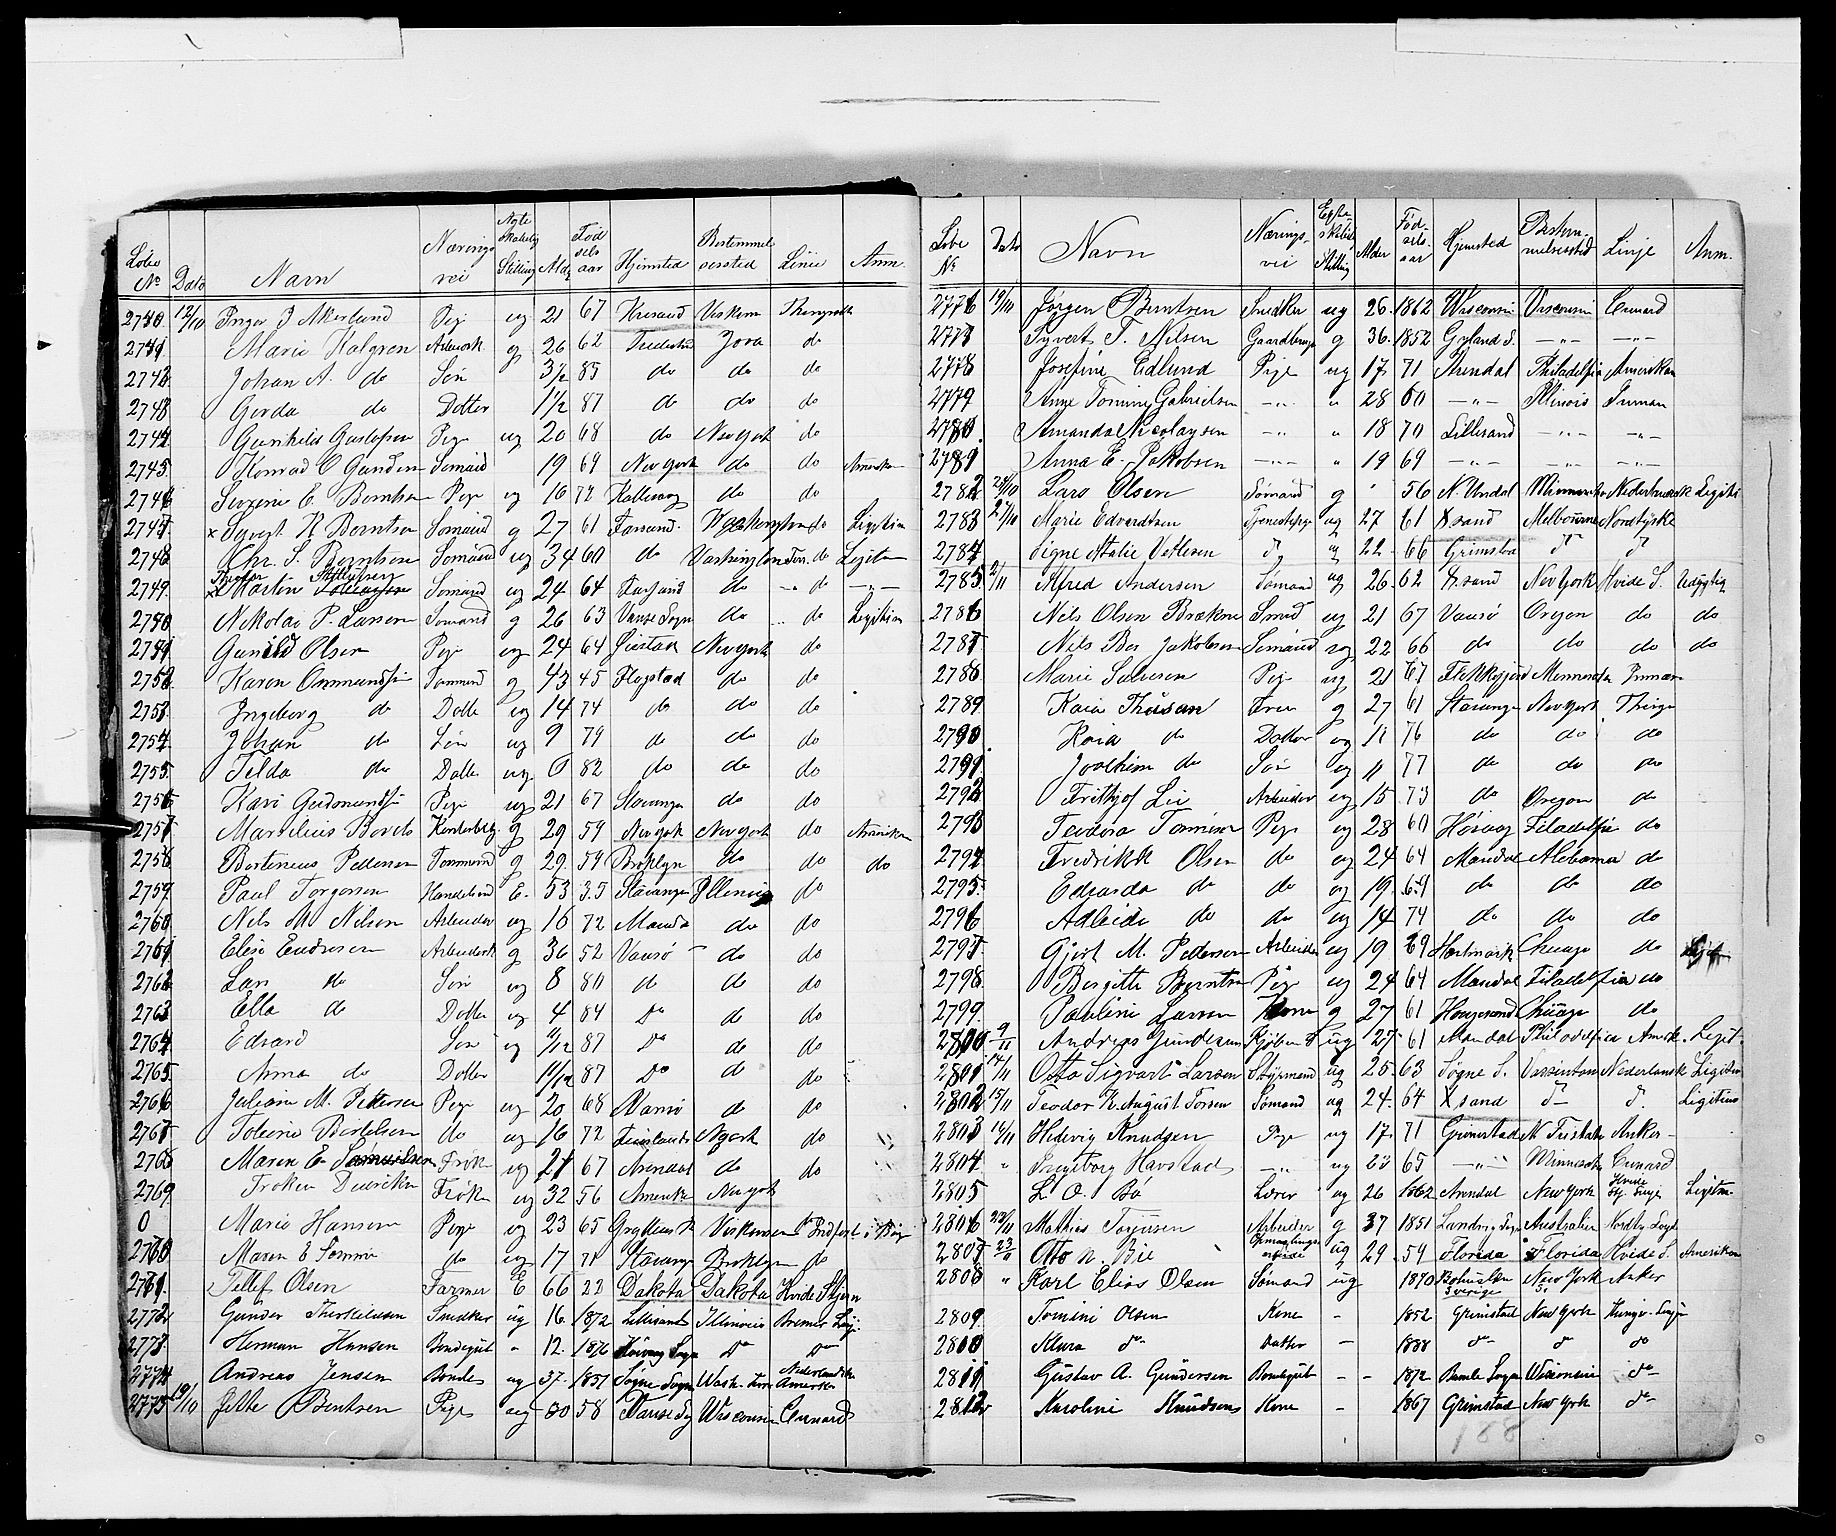 Løbe No Dato Navn Nærings vei Ægte skabelig Stilling Alder Fød sels aar Hjemsted Bestemmel sessted Linie Anm.
2740 12/10 Inger J Akerlund Pige ug 21 67 Krsand Viskon Thingvalla
2741 Marie Halgren Arbeidsk g 26 62 Fredrikstad Jova do
2742 Johan A. do Søn 3½ 85 do do do
2743 Gerda do Dotter 1½ 87 do do do
2744 Gunhild Gustafsen Pige ug 20 68 do Nevyork do
2745 Konrad C Gunders Sømand 19 69 Nevyork do do Amerika
2746 Suzerie E Berntsen Pige ug 16 72 Kallevaag do do
2747 x Syvert K Berntsen Sømand g 27 61 Farsund Vaskington do Legitim
2748 Chr. S. Berntsen Sømand ug 34 60 do Vaskington Terr. do Legitim
2749 x Martin Sømand ug 24 64 Farsund do do —"—
2750 Nikolai P. Larsen Sømand g 26 63 Vanse Sogn do do Legitim
2751 Gunild Olsen Pige ug 24 64 Nevyork do
2752 Karen Ommundsen g 43 45 Flegstad do do
2753 Ingeborg do Dotter ug 14 74 do do do
2754 Johan do Søn ug 9 79 do do do
2755 Tilda do Dotter ug 6 82 do do do
2756 Kari Gudmundsen Pige ug 21 67 Stavanger do do
2757 Marselius Bovets g 29 59 Nevyork Nevyork do Amerika
2758 Bertineus Pedersen Tommermd g 29 59 Broklyn do do do
2759 Paul Torgersen Handelsmd E. 53 35 Stavanger Illinois do
2760 Nils M Nilsen Arbeider ug 16 72 Mandal do do
2761 Elise Endresen Arbeidsk g 36 52 Vansø do do
2762 Lars do Søn ug 8 80 do do do
2763 Ella do Dotter ug 4 84 Do do do
2764 Edvard Søn ug 11/12 87 Do do do
2765 Anna do Dotter 11/12 87 Do do do
2766 Juliane M. Pettersen Pige ug 20 68 Vansø do do
2767 Toline Bertelsen do ug 16 72 Nyork do
2768 Maren E Samuelsen Frøk ug 21 67 Arendal do do
2769 Frøken Didriksen Frøken ug 32 56 Amerika Nevyork
0 Marie Hansen Pige ug 23 65 Viskonsen
2760 Maren E Tomme do ug 17 71 Stavanger Broklyn do
2761 Tellef Olsen Farmer E 66 22 Dakota Dakota Hvide Stjern
2772 Gunder Therkildsen Snedker ug 16 1872 Lillesand Illinois Bremer Linje
2773 Herman Hansen Bondegut " 12 1876 Høivaag Sogn Do Do
2774 Andreas Jensen Bonde ug 37 1851 Søgne Sogn Wash. Terr Nederlandsk Amerika
2775 19/10 Jette Bentsen Pige ug 30 58 Vanse Sg Wisconsin Cunard
Løbe No Dato Navn Nærings- vei Egte- skabelig Stilling Alder Fød- sels- aar Hjemsted Bestem- melsessted Linje Anm.
2776 19/11 Jørgen Bentsen Snedker ug 26 1862 Wisconsin Visconsin Cunard
2777 Syvert T. Nilsen Gaardbruger g 36 1852 Gyland S. —"— —"—
2778 Josefine Edlund Pige ug 17 71 Arendal Philadelfia Amerikan
2779 Anne Tomine Gabrielsen —"— " 28 60 —"— Illinois Inman
2780 Amanda Nicolaysen —"— " 18 70 Lillesand —"— —"—
2781 Anna E. Jakobsen —"— " 19 69 —"— —"— —"—
2782 24/10 Lars Olsen Sømand g " 56 N. Undal Minnesota Nederlandsk Legiti
2783 27/10 Marie Edvardsen Tjenestepige ug 27 61 X sand Melbourne Nordtyske
2784 Signe Atalie Vetlesen d ug 22 66 Grimstad d d
2785 2/11 Alfred Andersen Sømand ug 26 62 X sand Nevyork Hvide S. Udygtig
2786 Nils Olsen Brækne Smed ug 21 67 Vansø Oregon do do
2787 Nils Ber Jakobsen Sømand ug 22 66 do do do do
2788 Marie Salvesen Pige ug 21 67 Flekkefjord Minnesota Inman
2789 Kaia Thusan Frue g 27 61 Stavanger Nevyork Thingv
2790 Kaia do Dotter ug 11 76 do do do
2791 Joakim do Søn ug 11 77 do do do
2792 Frithjof Lie Arbeider ug 15 73 do Oregon do
2793 Teodora Tønnesen Pige ug 28 60 Høivaag Filadelfia do
2794 Fredrikk Olsen do ug 24 64 Mandal Alebama do
2795 Edvarda do do ug 19 69 do do do
2796 Adleide do do ug 14 74 do do do
2797 Gjert M. Pedersen Arbeider ug 19 69 Hartmark Chicago do
2798 Bergitte Berntsen Pige ug 24 64 Mandal Filadelfia do
2799 Pauline Larsen Kone g 27 61 Haugesund Chicago do
2800 9/11 Andreas Gundersen ug 27 61 Mandal Philadelfia Amerik. Legit.
2801 14/11 Otto Sigvart Larsen Styrmand ug 25 63 Søgne S. Vassinton Nederlansk Legitim
2802 15/11 Teodor K. August Torsen Sømand ug 24 64 X sand d— d. Legitim
2803 16/11 Hedvig Knudsen Pige ug 17 71 Grimstad Anker
2804 " Ingeborg Havstad —"— ug 23 65 —"— Minnesota Cunard
2805 L. O. Bø Lærer ug 26 1862 Arendal New York Hvide Stj. Linje Legitm.
2806 23/11 Mathias Torjusen Arbeider g 37 1851 Landvig Sogn Australien Nordty. Loyd
2807 23/11 Otto N. Bie Opmaalings- arbeide ug 29 59 Florida Florida Hvide S. Amerikan
2808 " Karl Elias Olsen Sømand ug 1870 Bohuslen Sverige New York Anker
2809 Tomine Olsen Kone - 1852 Grimstad New York Thingv. Linje
2810 Klara do Datter - 1888 do do do
2811 Gustav A. Gundersen Bondegut - - 1872 Bamle Sogn Wisconsin do
2812 Karoline Knudsens Kone - 1867 Grimstad New York do
188